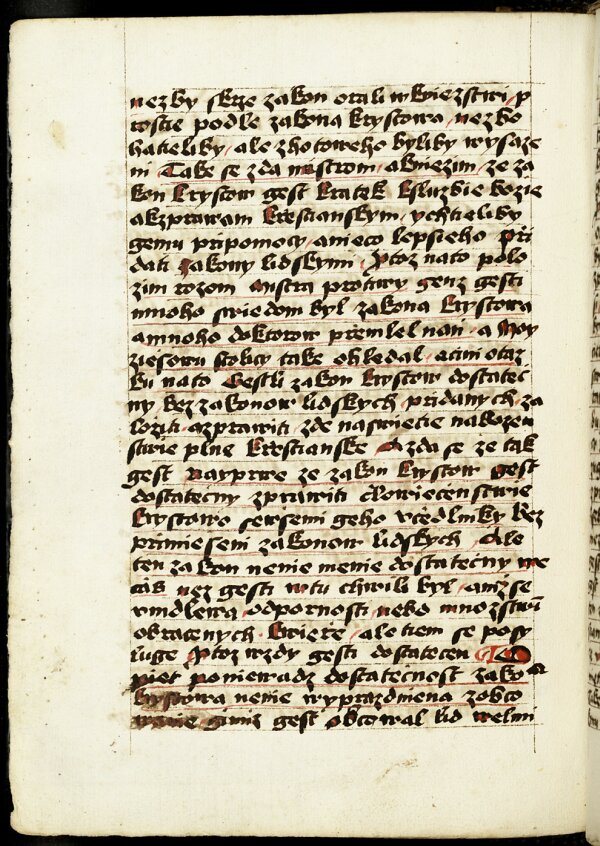 nezby skrze zakon otali w kniezstwi p
rostie podle zakona krystowa nezbo
hatieliby ale zhotoweho byliby wysaze
ni Take se zda mistrom a kniezim ze za
kon krystow gest kratek k sluzbie bozie
a k zprawam krestianskym y chtieliby
gemu pripomocy a nieco lepsieho pri
dati zakony lidskymi Protoz na to polo
zim rozom mistra protiwy genz gest
mnoho swiedom byl zakona krystowa
a mnoho doktorow premlel nan a Moy
ziesowu stolicy take ohledal a cini otaz
ku na to Gestli zakon krystow dostatec
ny bez zakonow lidskych pridanych za
loziti a zprawiti zde na swietie nabozen
stwie plne krestianske A zda se ze tak
gest nayprwe ze zakon krystow gest
dostatecny zprawiti clowiecenstwie
krystowo se wsemi geho vredlniky bez
primieseni zakonow lidskych Ale
ten zakon nenie menie dostatecny we
cas nez gest w tu chwili byl aniz se
vmdlewa odpornosti nebo mnozstwim
obracenych k wiere ale tiem se posy
luge Protoz wzdy gest dostatecen
piet poniewadz dostatecnost zako
krystowa nenie wyprazdniena zobco
wanie gimiz gest obcowal lid welmi